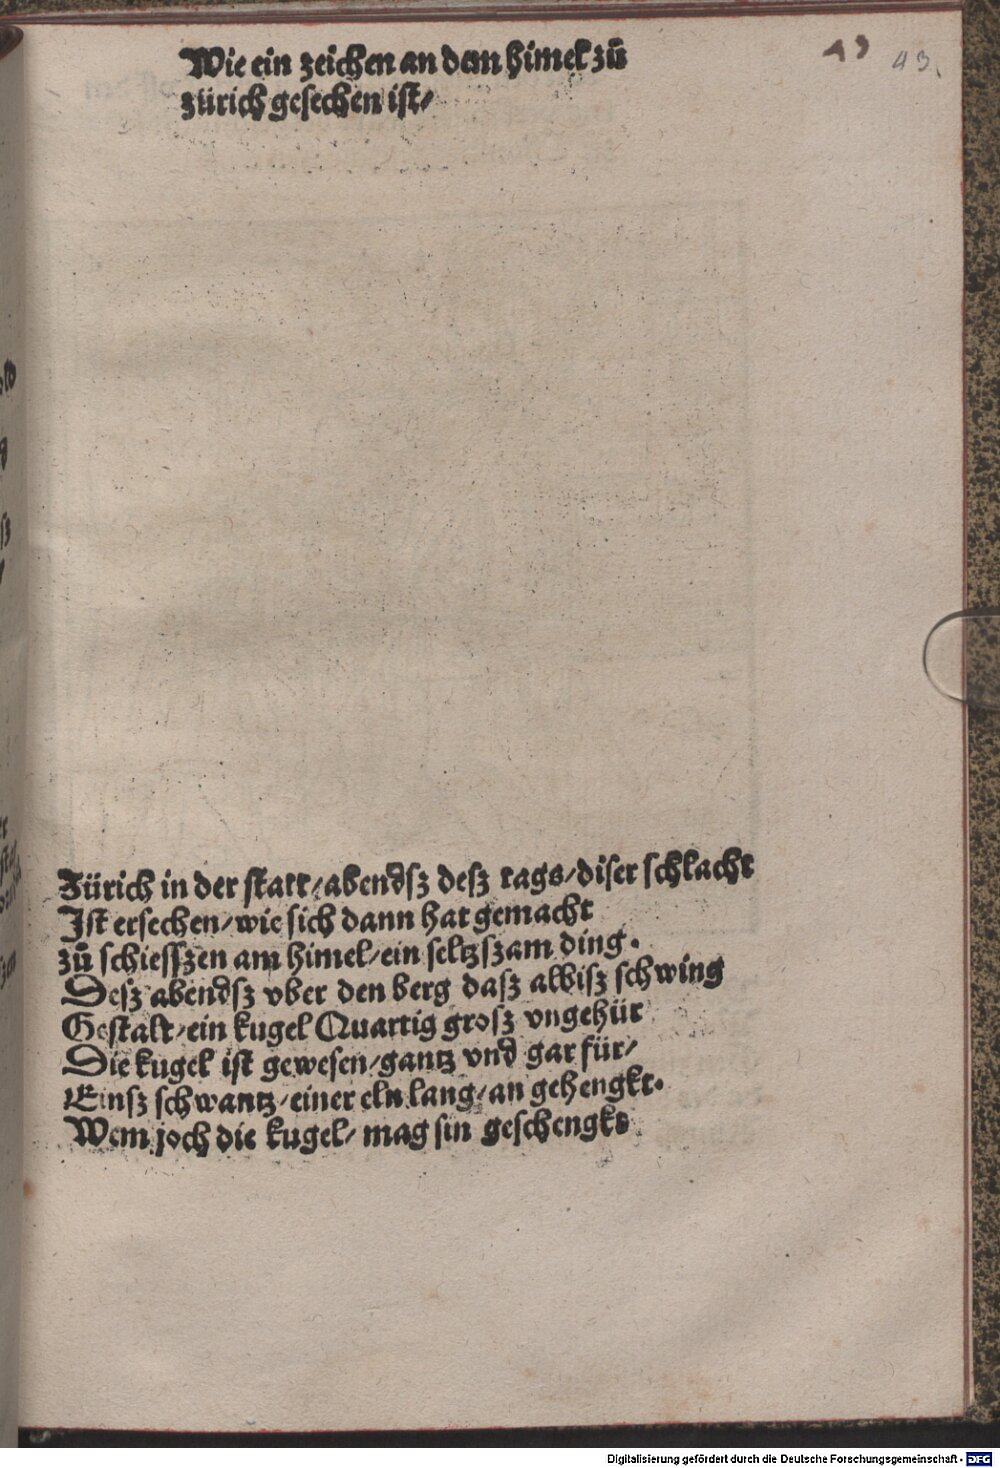 Wie ein zeichen an dem himel zů
zürich gesechen ist/
43.
Zürich in der statt/abendsz desz tags/diser schlacht
Ist ersechen/wie sich dann hat gemacht
zů schiesszen am himel/ein seltzszam ding.
Desz abendsz vber den berg dasz albisz schwing
Gestalt/ein kugel Quartig grosz vngehür
Die kugel ist gewesen/gantz vnd gar für/
Einsz schwantz/einer eln lang/an gehengkt.
Wem joch die kugel/mag sin geschengkt
Digitalisierung gefördert durch die Deutsche Forschungsgemeinschaft - DFG